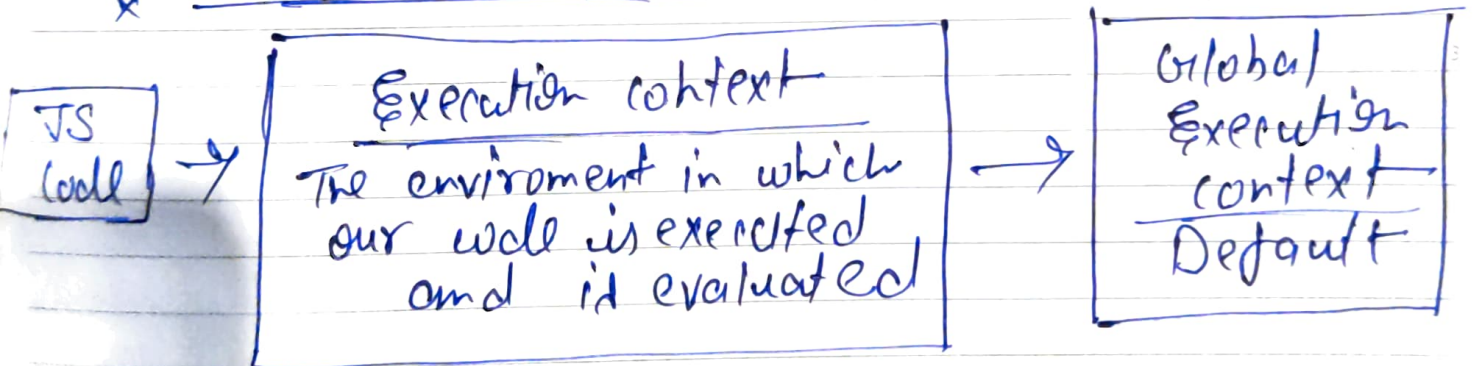 JS
Code
Execution context
The enviroment in which
our code is executed
and is evaluated
Global
Execution
context
Default